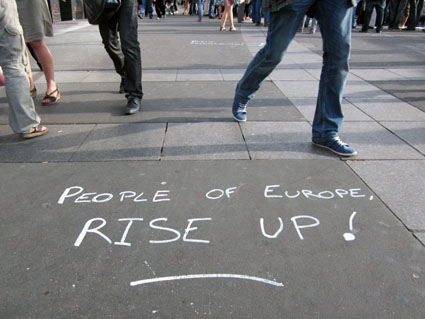 People of Europe,
RISE UP!